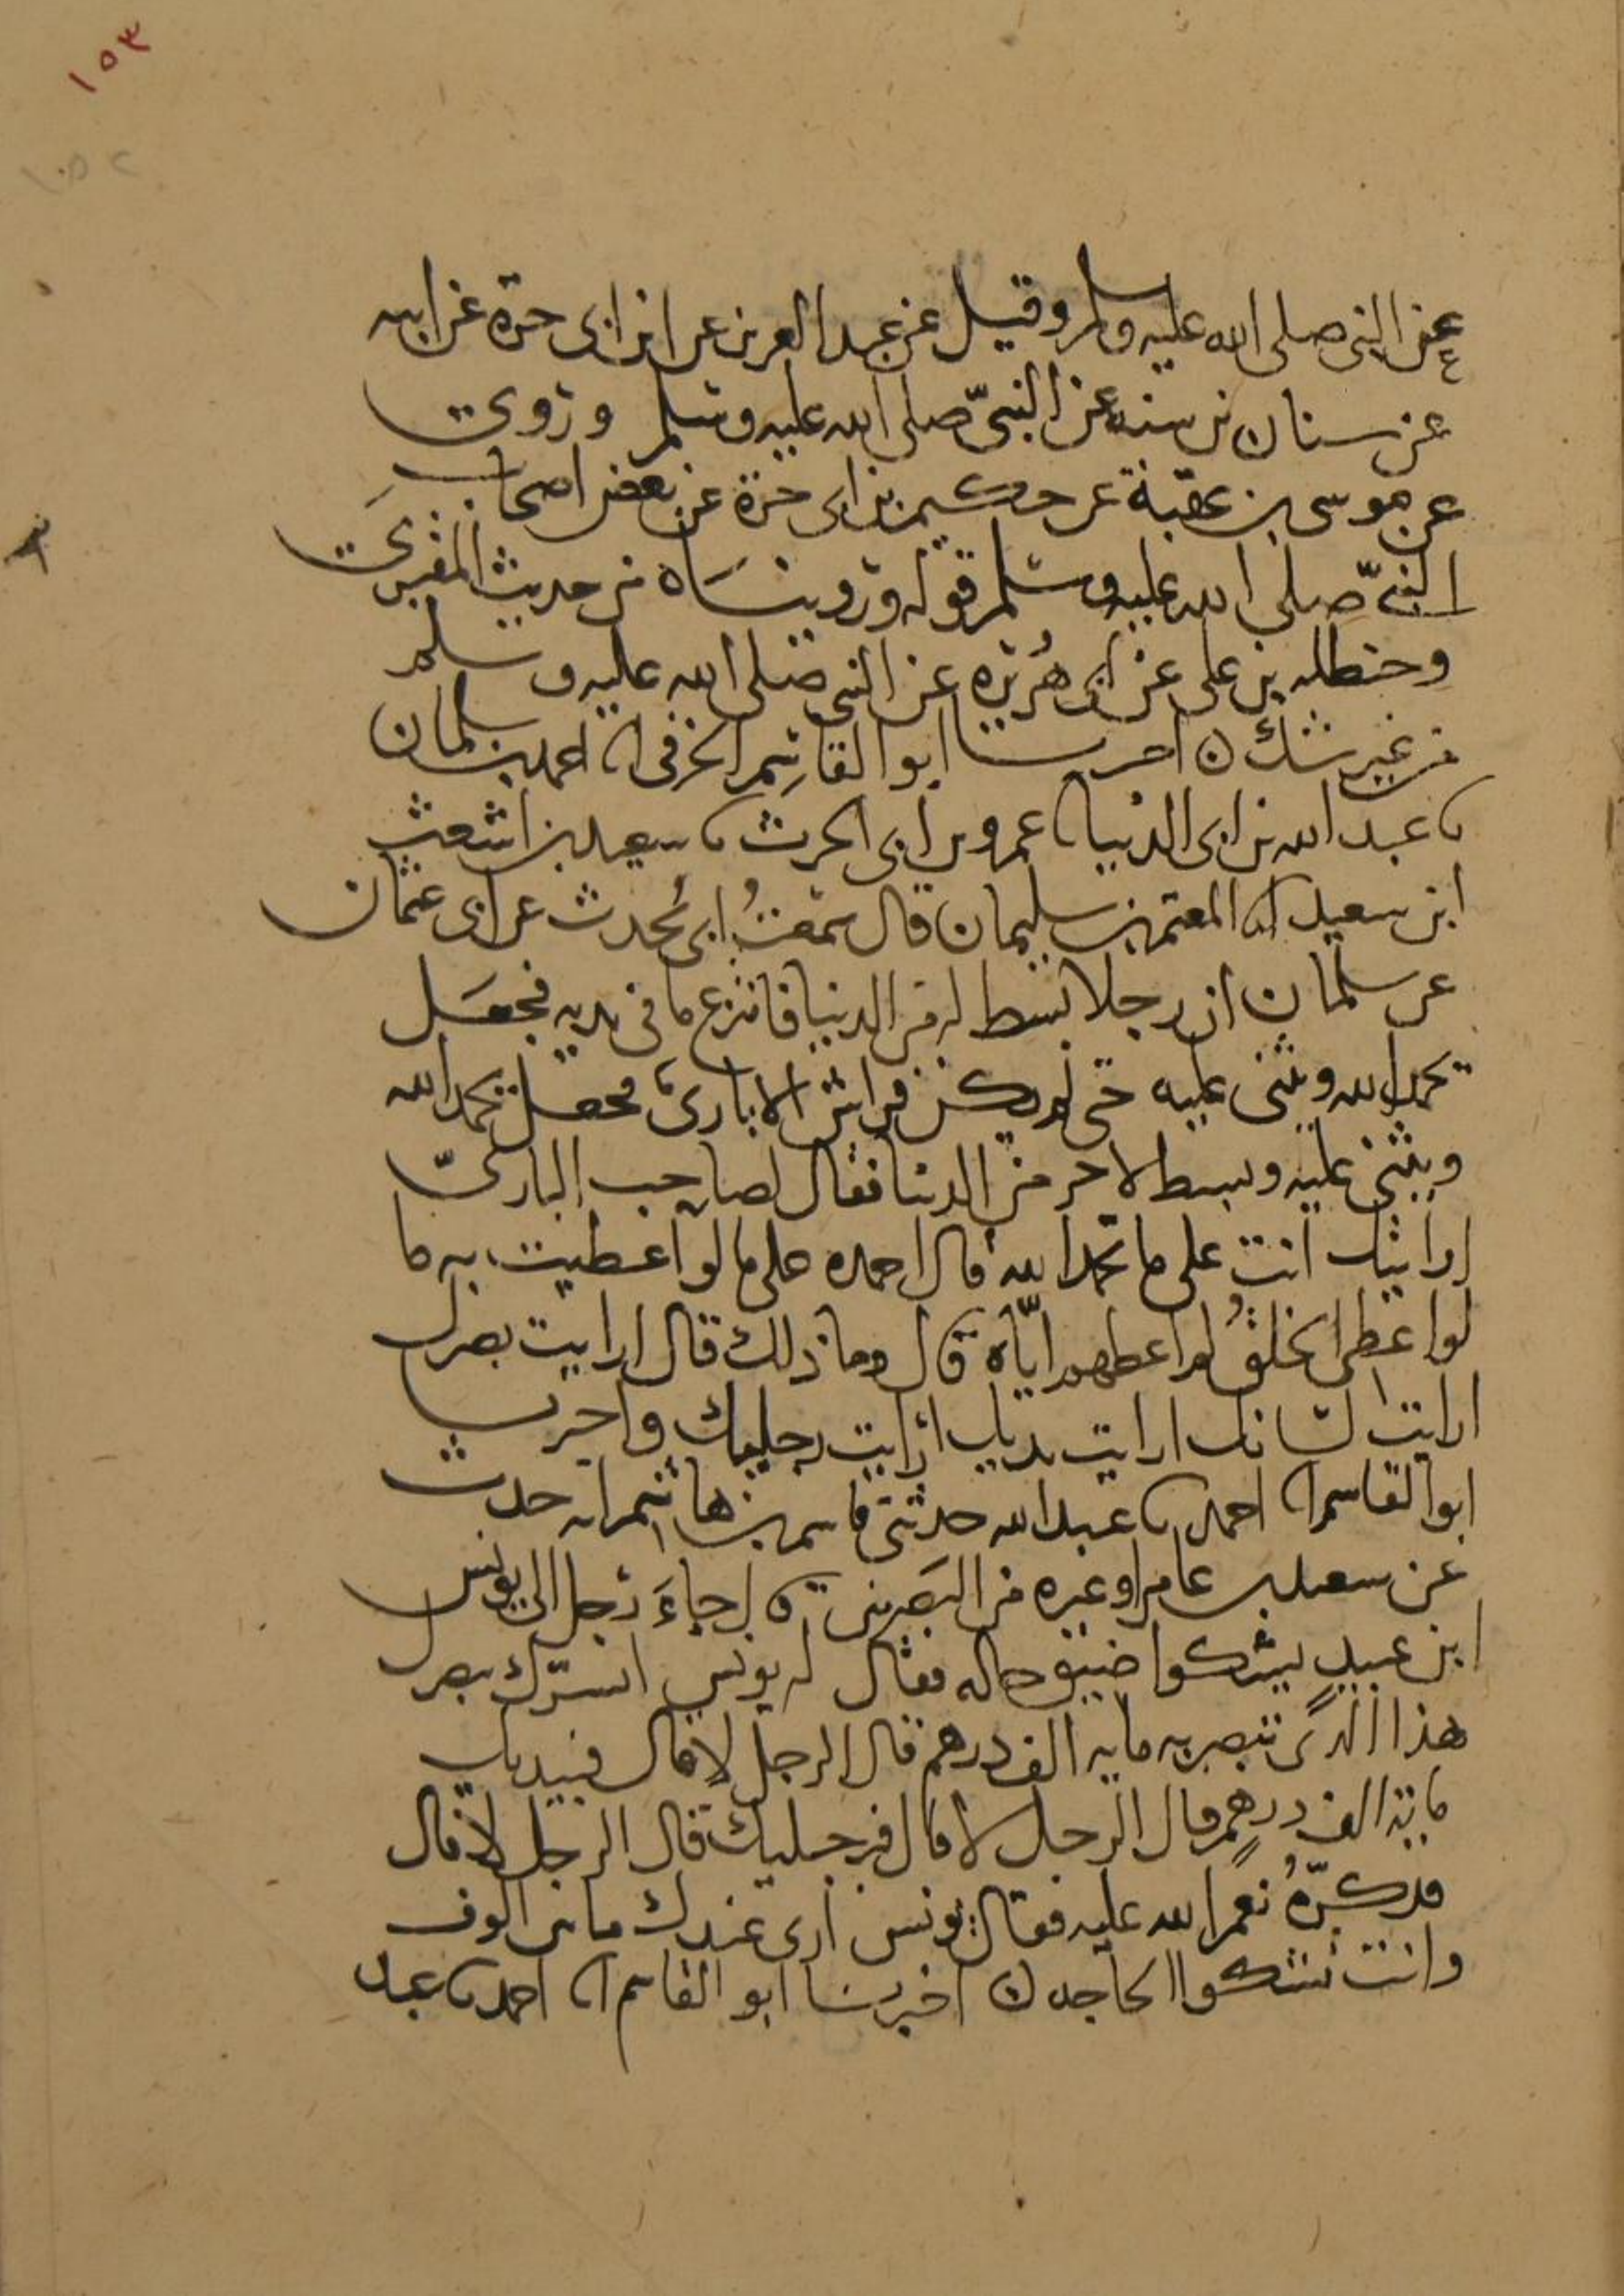 ١٥٣
١٥٢
عن النبي صلى الله عليه وسلم وقيل عن عبد العزيز عن ابن ابى حرة عن ابيه
عن سنان بن سنه عن النبيّ صلى الله عليه وسلم وروى
عن موسى بن عقبة عن حكيم بن ابى حرة عن بعض اصحاب
النبيّ صلى الله عليه وسلم قوله ورويناه من حديث المقبرى
وحنظله بن على عن ابى هُريره عن النبي صلى الله عليه وسلم
من غير شك ن اخبرنا ابو القاسم الخرفى انا احمد بن سلمان
نا عبد الله بن ابى الدنيا نا عمرو بن ابى الحرث نا سعيد بن اشعث
ابن سعيد انا المعتمر بن سليمان قال سمعتُ ابى يُحدث عن ابى عثمان
عن سلمان ان رجلا بسط له من الدنيا فانتزع ما فى يديه فجعَل
يحمد الله ويثنى عليه حتى لم يكن فراش الا بارىّ فجعل يحمد الله
ويثنى عليه وبسط لاخر من الدنيا فقال لصاحب البارىّ
ارايتك انت على ما تحمد الله قال احمده على ما لو اعطيت به ما
لو اعطى الخلقُ لم اعطهم ايّاه قال وما ذلك قال ارايت بصرك
ارايت لسانك ارايت يديك ارايت رجليك واخبرنا
ابو القاسم انا احمد نا عبد الله حدثنى قاسم بن هاشم انه حدث
عن سعيد بن عامر او غيره من البصريين قال جاءَ رجل الى يونس
ابن عبيدٍ يشكوا ضيق حاله فقال له يونس ايسرّك ببصرك
هذا الذى تبصر به مايه الف درهم قال الرجل لا قال فبيديك
مايه الف درهم قال الرجل لا قال فبرجليك قال الرجل لا قال
فذكّرهُ نعم الله عليه فقال يونس ارى عندك مائين الوف
وانت تشكوا الحاجه ن اخبرنا ابو القاسم انا احمد نا عبد